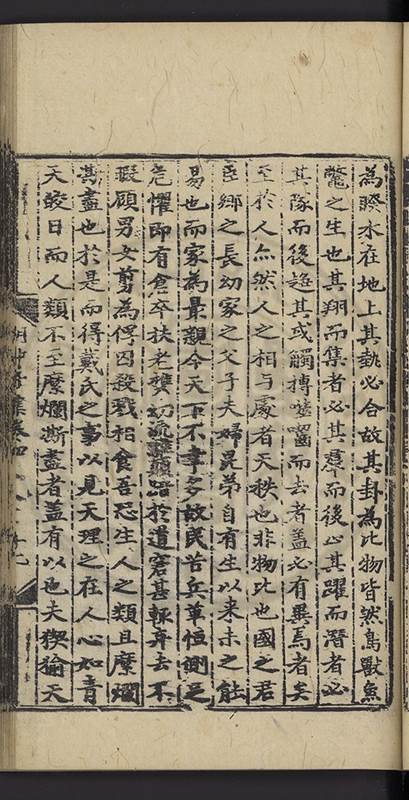 為睽水在地上其埶必合故其卦為比物皆然鳥獸魚
鼈之生也其翔而集者必其羣而後止其躍而潛者必
其隊而後趨其或觸搏噬齧而去者蓋必有異焉者矣
至於人亦然人之相与處者天秩也非物比也國之君
臣鄉之長幼家之父子夫婦昆弟自有生以來未之能
易也而家為最親今天下不幸多故民苦兵革恒惻足
危懼即有倉卒扶老攜幼流離顛踣於道窘甚輒弃去不
暇顧男女剪為俘囚殺戮相食吾恐生人之類且糜爛
蕩盡也於是而得戴氏之事以見天理之在人心如青
天皎日而人類不至糜爛澌盡者蓋有以也夫猰㺄天
集卷四